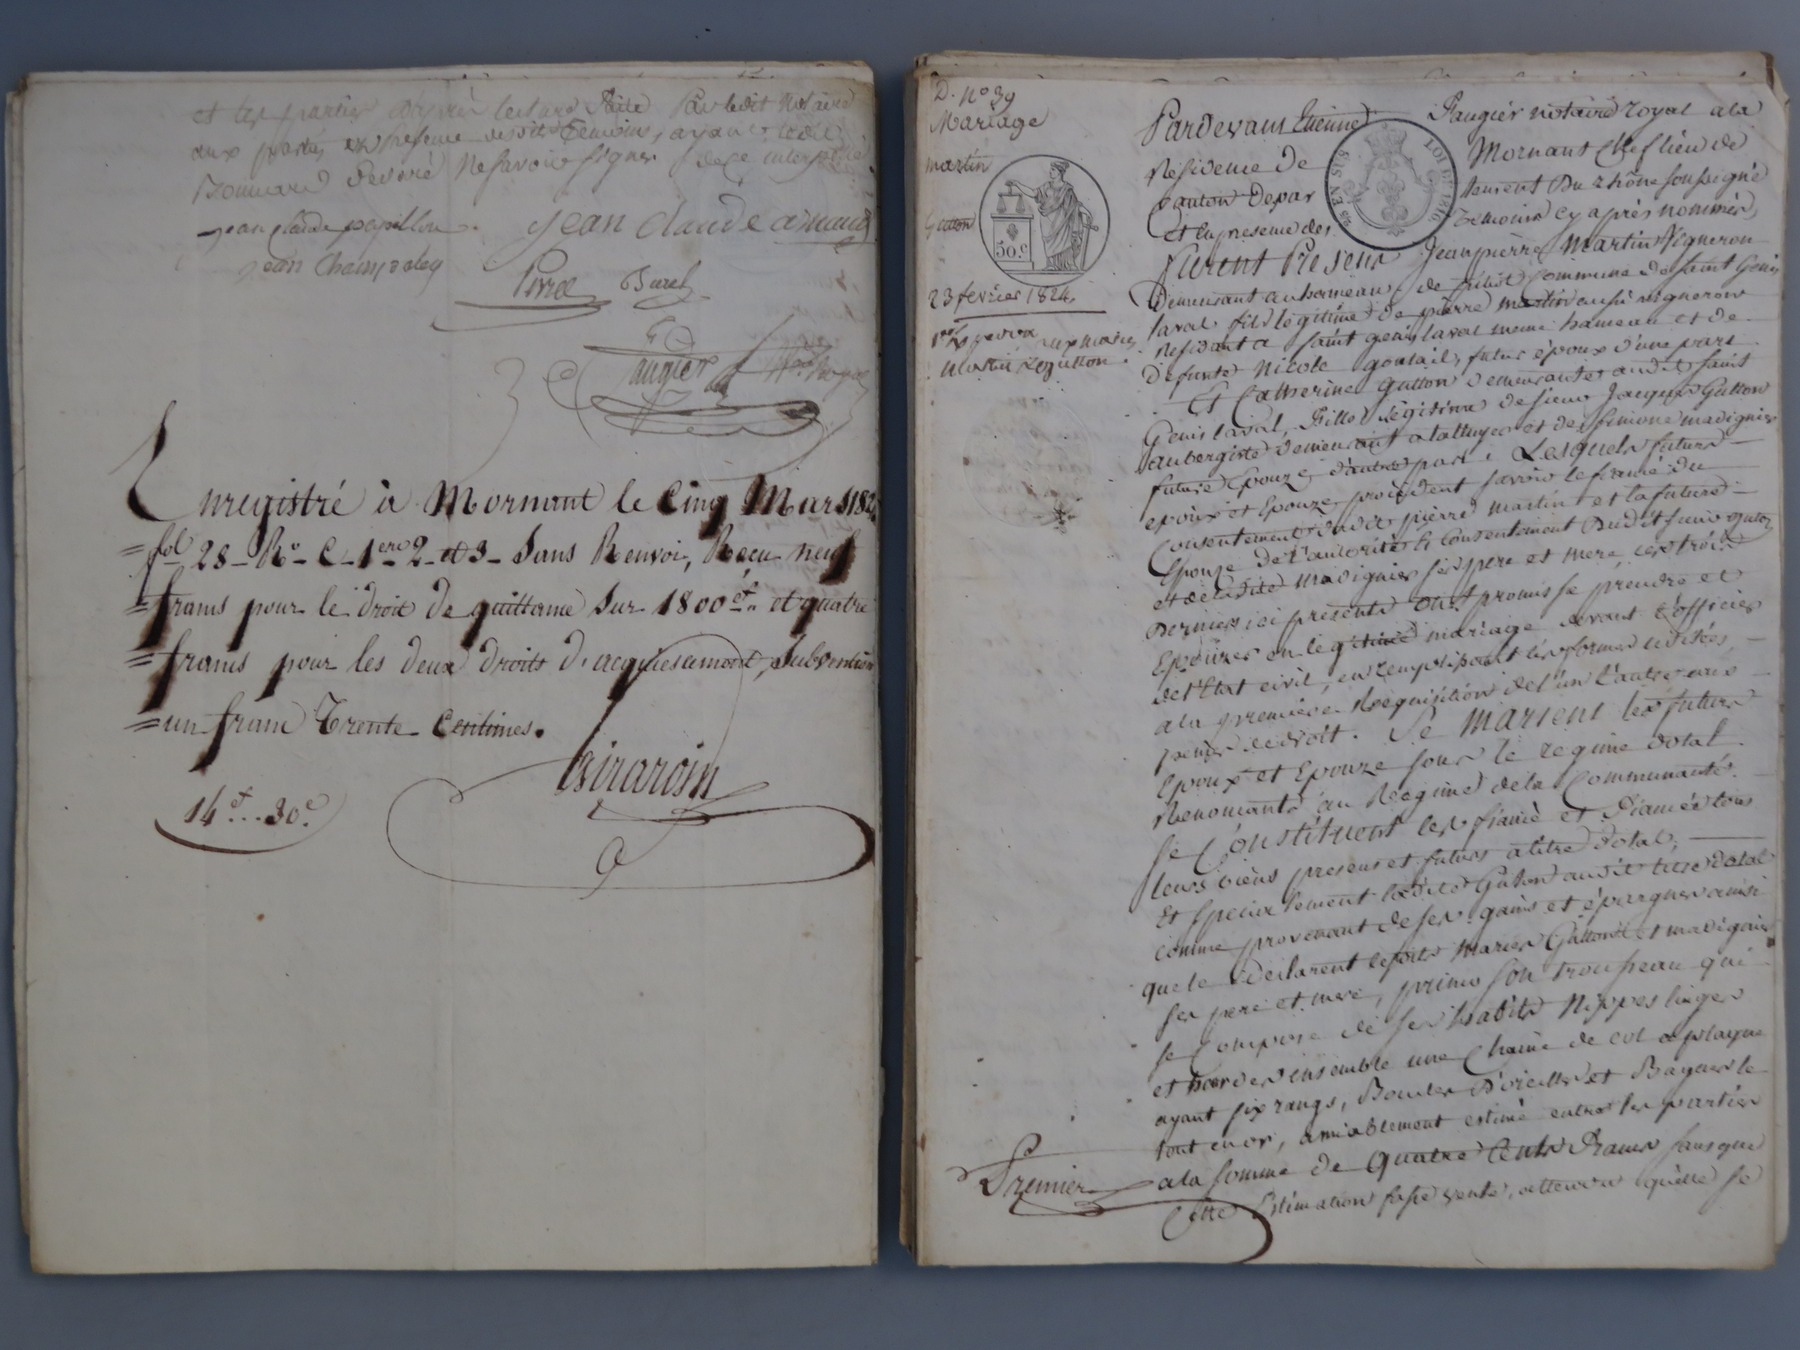 et les parties d'après lecture faite par ledit notaire
aux parties en presence desdits temoins, ayant ledit
Bonnard declaré ne savoir signer de ce
jean claude papillon jean claude arnaud
jean
Pirre Buret
faugier
Enregistré à Mornant le Cinq Mars 182
fol 28 Ro C 1ere 2 et 3 Sans Renvoi, Reçu neuf
francs pour le droit de quittance sur 1800 et quatre
francs pour les deux droits d'acquiescement, subvention
un franc Trente Centimes.
Girardin
14 .. 30c
D. No 39
Mariage
martin
Gutton
23 fevrier 1824
martin & gutton
50c
LOI DE 1816
25 EN SUS
Pardevant Etienne Faugier notaire royal a la
Residence de Mornant chef lieu de
canton Depar tement Du rhône soussigné
Et en presence des Temoins cy après nommés,
Furent Presens Jeanpierre Martin Vigneron
Demeurant au hameau de commune de saint Genis
laval fils legitime de pierre martin aussi vigneron
Residant a saint genis laval meme hameau et de
defunte Nicole futur époux d'une part
Et Catherine gutton demeurante audit saint
Genis laval, Fille legitime de sieur Jacques Gutton
aubergiste demeurant a et de simone madignier
future Epouze d'autre part; Lesquels futurs
epoux et Epouze procedent savoir le fiancé du
Consentement dudit pierre martin et la future
Epouze de l'autorité et Consentement Dudit sieur gutton
et deladite madignier ses pere et mere ces trois
derniers ici presents ont promis se prendre et
Epouzer en legitime mariage devant l'officier
de l'Etat civil, en remplissant les formes usitées,
a la premiere Requisition de l'un l'autre aux
peines de droit. Se Marient les futurs
Epoux et Epouze sous le regime dotal
Renonçants au Regime de la Communauté.
Se Constituent les fiancé et fiancée tous
leurs biens presens et futurs a titre dotal,
Et specialement ladite Gutton audit titre dotal
comme provenant de ses gains et épargnes ainsi
que le declarent lesdits Mariés Gutton et madignier
ses pere et mere, primo son trousseau qui
se Compose de ses habits Nippes linges
et hardes ensemble une Chaine de col a plaque
ayant six rangs, Boucles d'oreilles et Bagues le
tout en or, amiablement estimé entre les parties
a la somme de Quatre Cents Francs sans que
Cette Estimation fasse vente, attendu quelle se
Premier